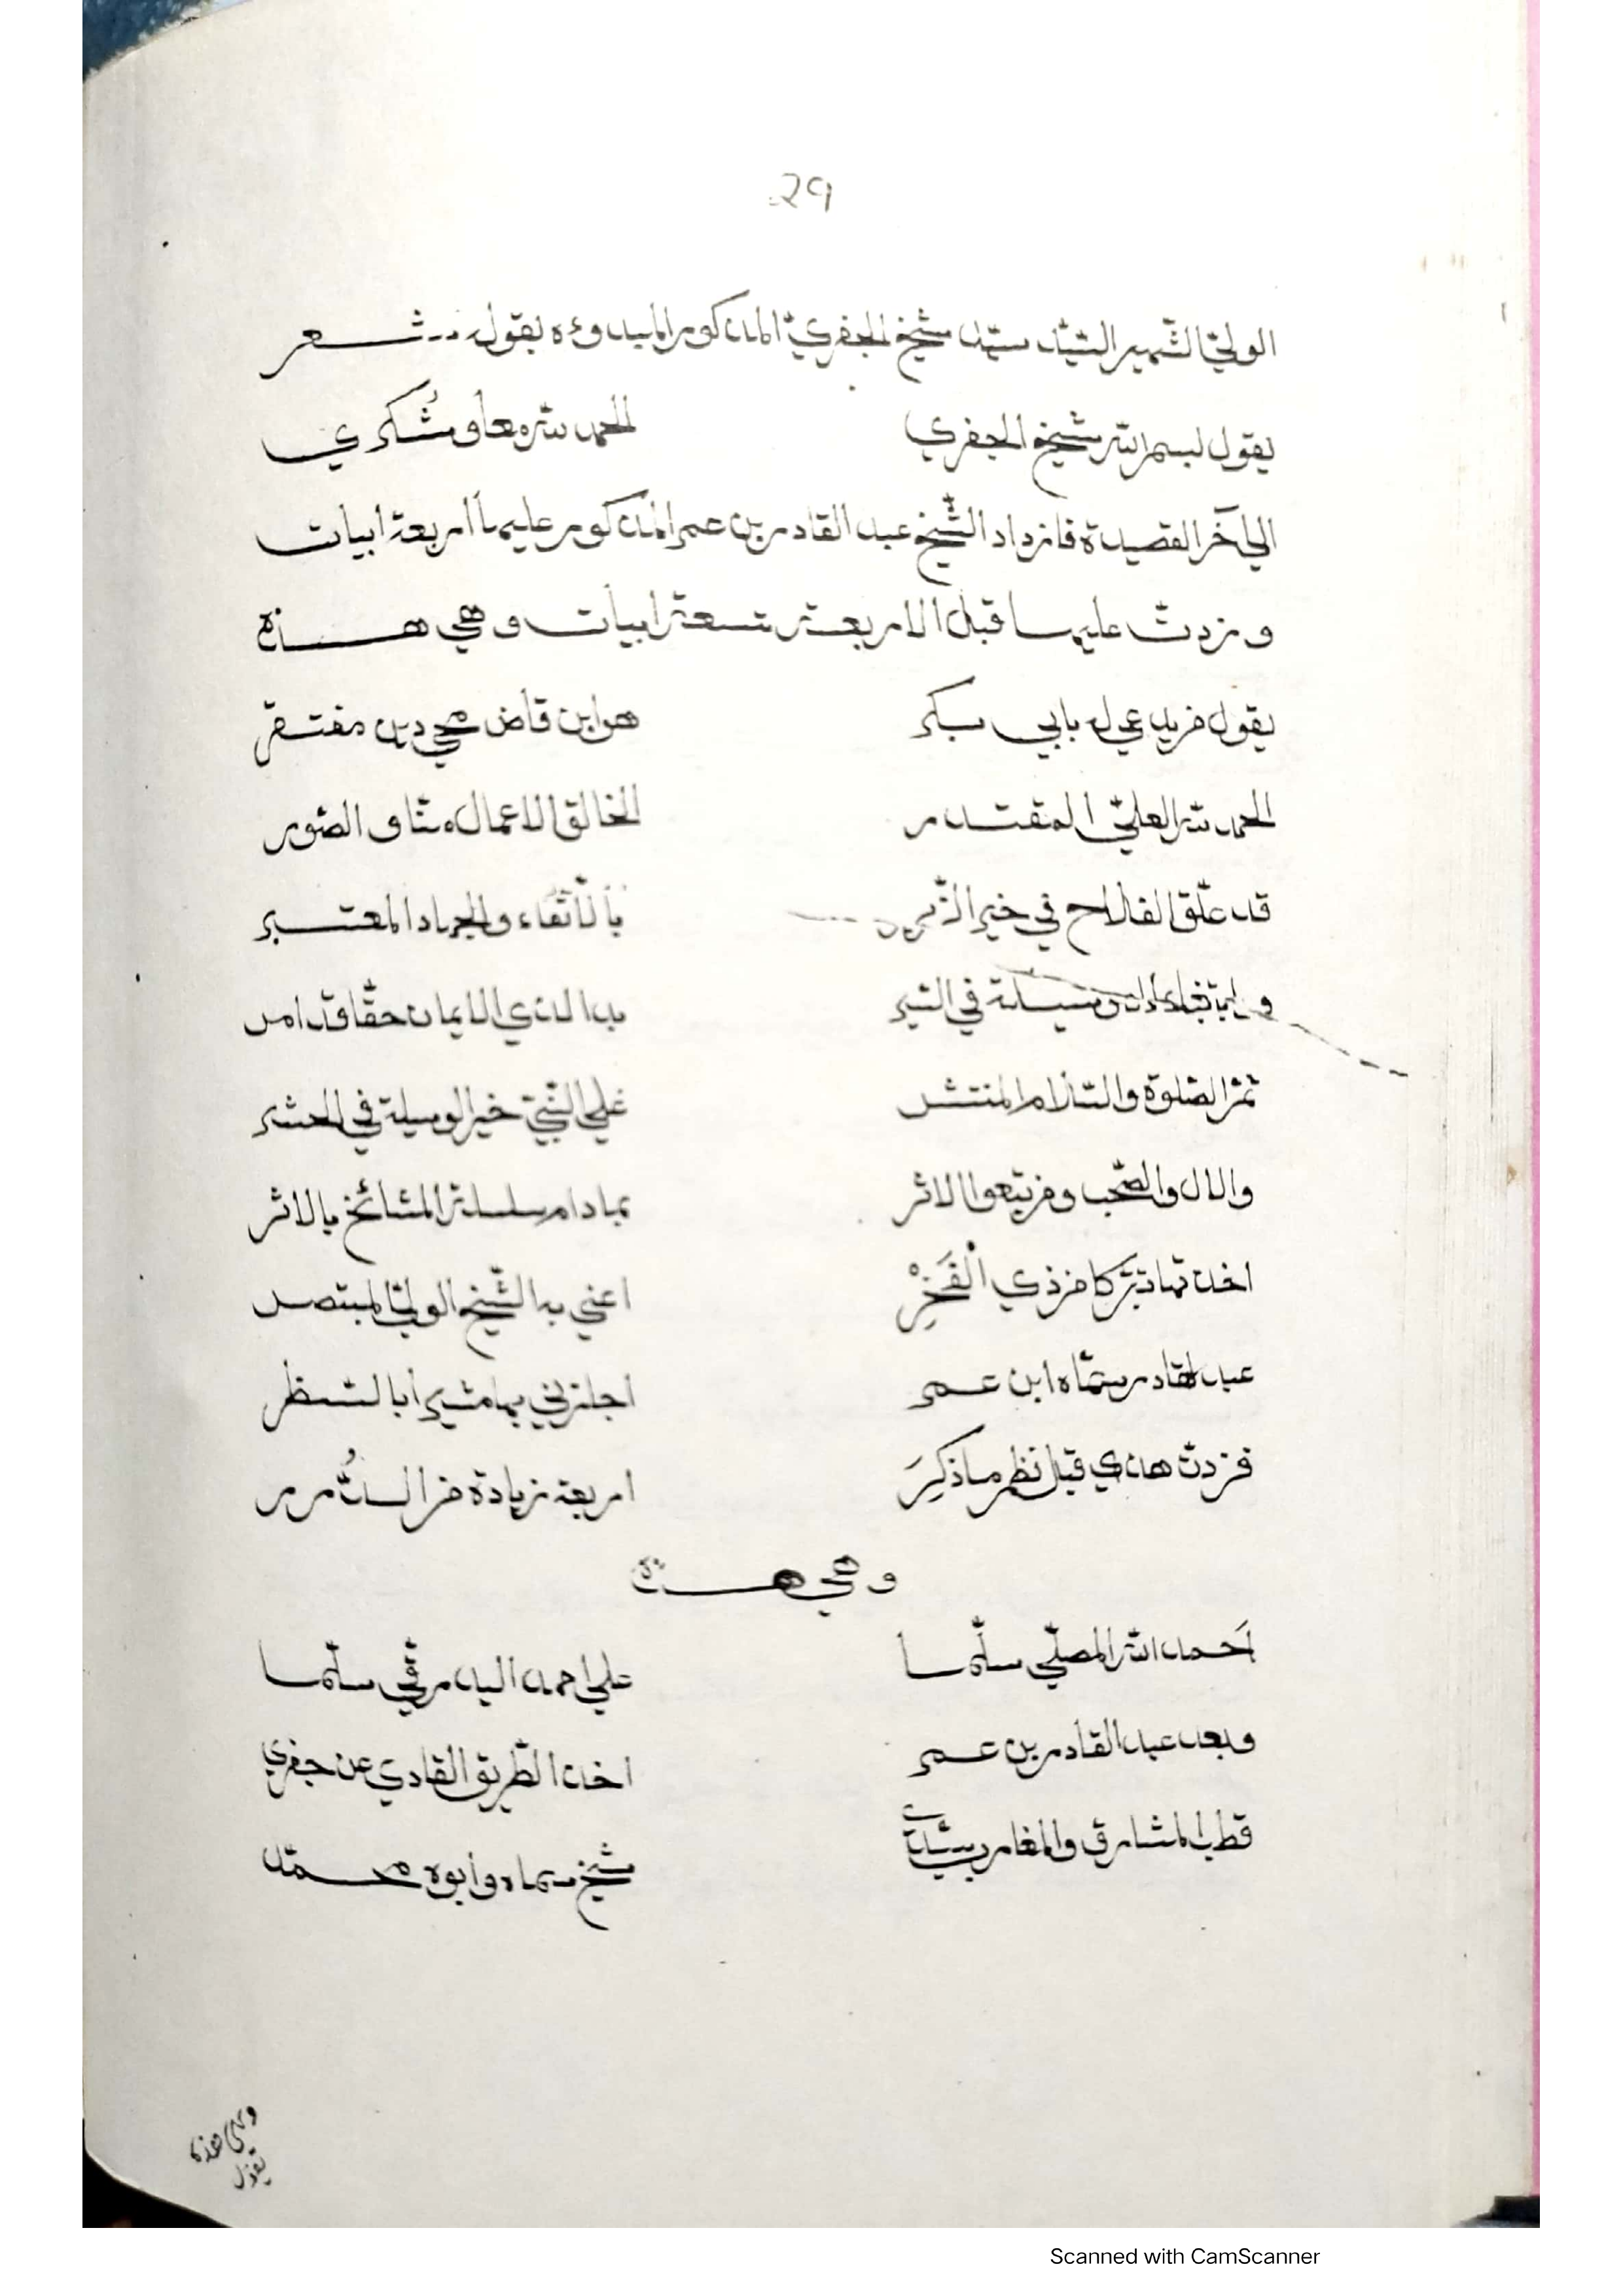 29
الوليّ الشّهير السّيّد سيّد شيخ الجفريّ المذكور المبدوءه يقول شعر
يقول بسم الله شيخ الجفري الحمد لله معاً وشُكري
الى آخر القصيدة فازداد الشّيخ عبد القادر بن عمر المذكور عليها أربعة أبيات
وزدت عليها قبل الاربعة تسعة أبيات وهي هذه
يقول مريد بابي بكر هو ابن قاض محي دين مفتقر
الحمد لله العليّ المقتدر الخالق الاعمال منّا والصّور
قد علّق الفلاح في خير الزّبر بالأتقاء والجهاد المعتبر
و الوسيلة في السّير الذي الايمان حقّا قد امر
ثمّ الصّلوة والسّلام المنتشر على النّبيّ خير الوسيلة في الحشر
والال والصّحب ومن تبعوا الاثر مادام سلسلة المشائخ بالاثر
اخذتها تبرّكا من ذي الْفَخْرِ اعني به الشّيخ الوليّ المبتصر
عبد القادر سمّاه ابن عمر اجازني بها مشيرا بالسّطر
فزدت هذي قبل نظم ما ذكِرَ اربعة زيادة من الدُّرر
وهي هذه
أحمد الله المصلّي سلّما على احمد اليه رقّي سلّما
وبعد عبد القادر بن عمر اخذ الطّريق القادي عن جفري
قطب المشارق والمغارب سيّدي شيخ سماه وأبوه محمّد
وهي هذه